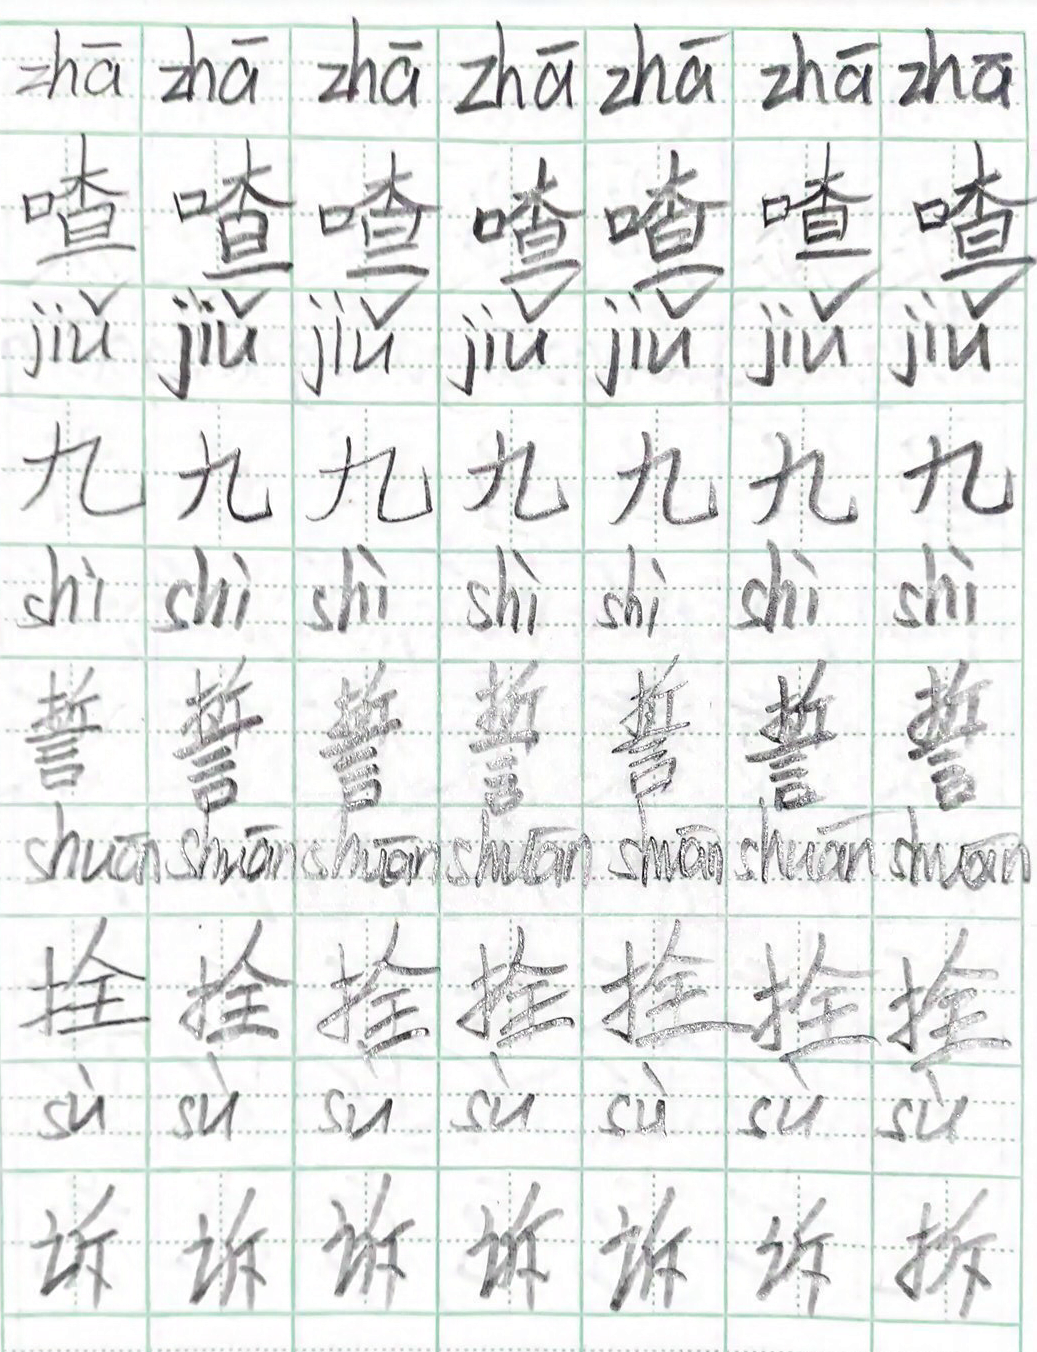 zhā zhā zhā zhā zhā zhā zhā
喳 喳 喳 喳 喳 喳 喳
jiǔ jiǔ jiǔ jiǔ jiǔ jiǔ jiǔ
九 九 九 九 九 九 九
shì shì shì shì shì shì shì
誓 誓 誓 誓 誓 誓 誓
shuān shuān shuān shuān shuān shuān shuān
拴 拴 拴 拴 拴 拴 拴
sù sù sù sù sù sù sù
诉 诉 诉 诉 诉 诉 拆